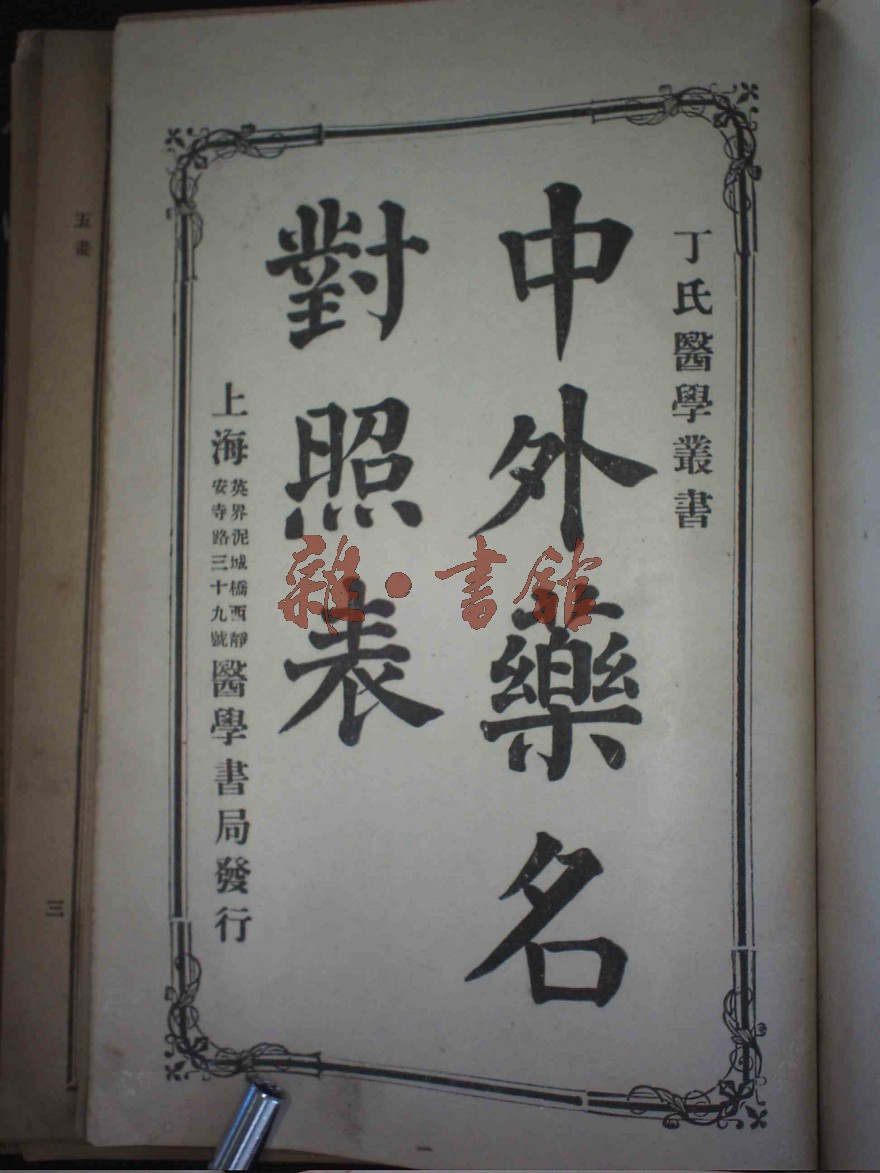 丁氏醫學叢書
中外藥名
對照表
上海英界泥城橋西靜安寺路三十九號醫學書局發行
雜·書館
五畫
三